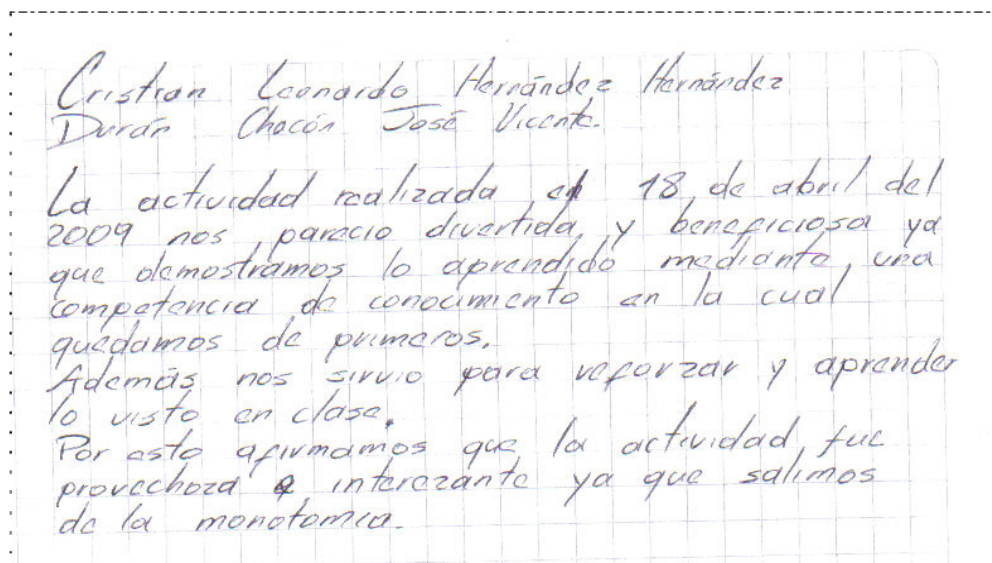 Cristian Leonardo Hernández Hernández
Durán Chacón José Vicente.
La actividad realizada el 18 de abril del
2009 nos parecio divertida, y beneficiosa ya
que demostramos lo aprendido mediante una
competencia de conocimiento en la cual
quedamos de primeros.
Además nos sirvio para reforzar y aprender
lo visto en clase.
Por esto afirmamos que la actividad fue
provechoza e interezante ya que salimos
de la monotomia.